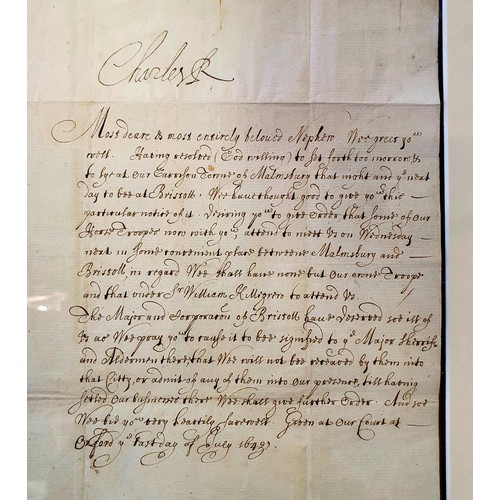 Charles R
Most deare & most entirely beloved Nephew Wee greet yo.w
well. Having resolved (God willing) to set forth too morrow &
to lye at Our Garrison Towne of Malmsbury that night and ye next
day to bee at Bristoll. We have thought good to give yow this —
particular notice of it. Desiring yow to give Order that some of Our
Horse Troopes now with yow, attend to meet Us on Wednesday
next in some convenient place betweene Malmsbury and —
Bristoll, in regard Wee shall have none but Our owne Troope
and that under Sr William Killigrew to attend Us.
The Major and Corporacon of Bristoll have deserved soe ill of
Us as Wee pray yow to cause it to bee signified to ye Major Sherriffs
and Aldermen there, that Wee will not bee received by them into
that Citty, or admit of any of them into Our presence, till having
setled Our businesse there Wee shall give further Order. And soe
Wee bid yow very heartily farewell. Given at Our Court at —
Oxford ye last day of July 1643.